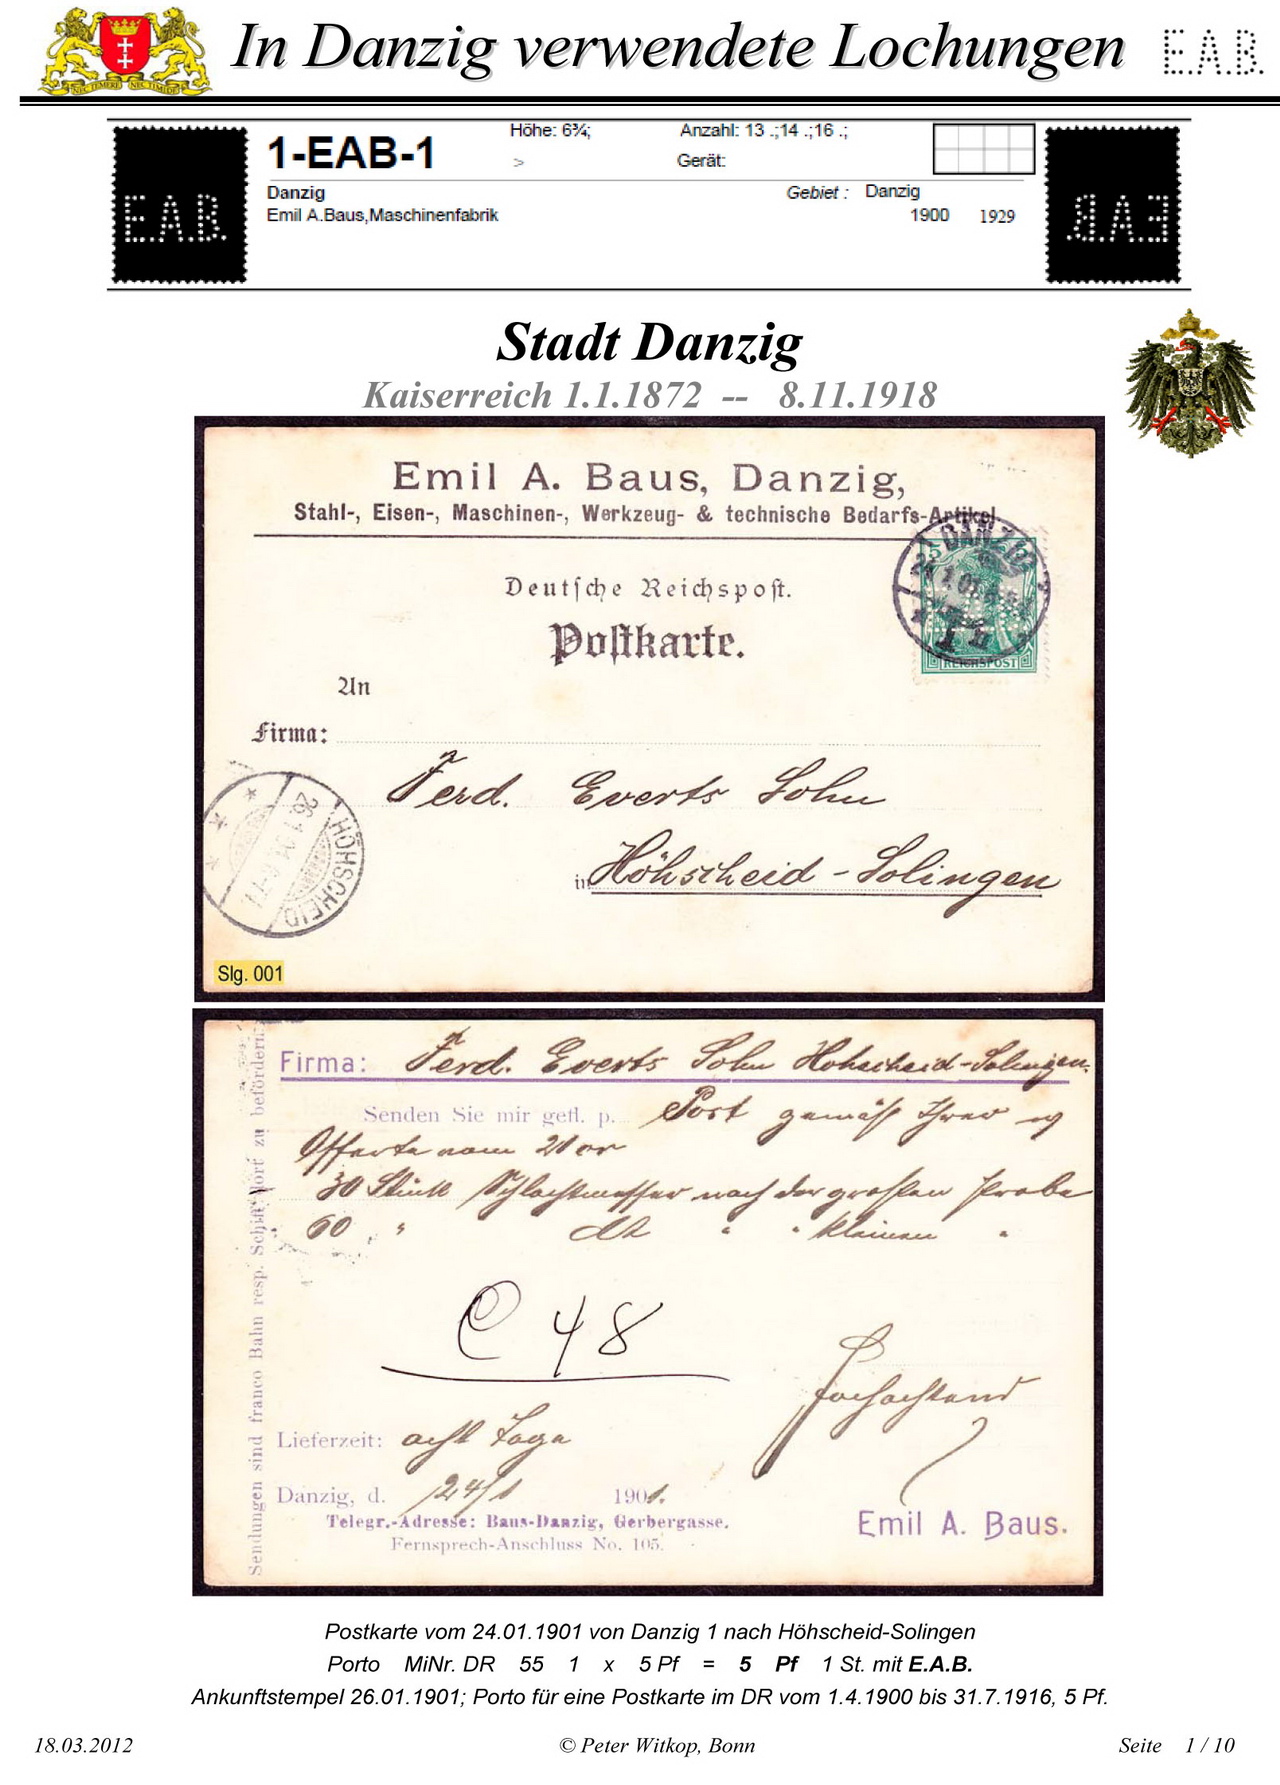 In Danzig verwendete Lochungen E.A.B.
NEC TEMERE NEC TIMIDE
1-EAB-1
Höhe: 6¾;
>
Anzahl: 13 .;14 .;16 .;
Gerät:
Danzig
Emil A.Baus,Maschinenfabrik
Gebiet : Danzig
1900 1929
E.A.B.
E.A.B.
Stadt Danzig
Kaiserreich 1.1.1872 -- 8.11.1918
Emil A. Baus, Danzig,
Stahl-, Eisen-, Maschinen-, Werkzeug- & technische Bedarfs-Artikel
Deutsche Reichspost.
Postkarte.
DANZIG
5
REICHSPOST
An
Firma:
Ferd. Everts Sohn
in Höhscheid-Solingen
HÖHSCHEID
26.1.01
Slg. 001
Firma: Ferd. Everts Sohn Hohscheid-Solingen.
Senden Sie mir gefl. p. Post gemäß Ihrer
Offerte vom
30 Stück Schlachtmesser nach der großen Probe
60 " " " kleinen "
C 48
Hochachtend
Lieferzeit: acht Tage
Danzig, d. 24/1 1901.
Telegr.-Adresse: Baus-Danzig, Gerbergasse.
Fernsprech-Anschluss No. 105.
Emil A. Baus.
Sendungen sind franco Bahn resp. Schiff dort zu befördern.
Postkarte vom 24.01.1901 von Danzig 1 nach Höhscheid-Solingen
Porto MiNr. DR 55 1 x 5 Pf = 5 Pf 1 St. mit E.A.B.
Ankunftstempel 26.01.1901; Porto für eine Postkarte im DR vom 1.4.1900 bis 31.7.1916, 5 Pf.
18.03.2012 © Peter Witkop, Bonn Seite 1 / 10